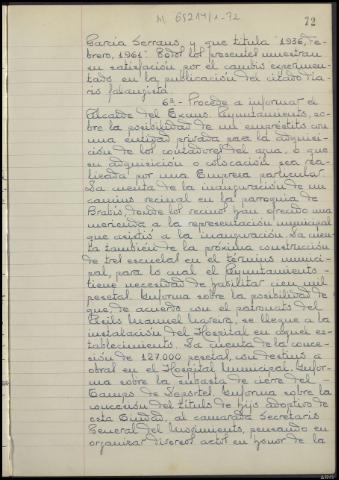 M 65214/1-72
72
García Serrano, y que titula "1936, Fe-
brero, 1961". Todos los presentes muestran
su satisfacción por el cambio experimen-
tado en la publicación del citado dia-
rio falangista.
6º.- Procede a informar el
Alcalde del Excmo. Ayuntamiento, so-
bre la posibilidad de un empréstito con
una entidad privada para la adquisi-
ción de los contadores del agua, o que
su adquisición o colocación sea rea-
lizada por una Empresa particular.
Da cuenta de la inauguración de un
camino vecinal en la parroquia de
Brabío, donde los vecinos han ofrecido una
merienda a la representación municipal
que asistió a la inauguración. Da cuen-
ta también de la próxima construcción
de tres escuelas en el término munici-
pal, para lo cual el Ayuntamiento -
tiene necesidad de habilitar cien mil
pesetas. Informa sobre la posibilidad de
que, de acuerdo con el patronato del
Asilo Manuel Naveira, se llegue a la
instalación del Hospital en aquel es-
tablecimiento. Da cuenta de la conce-
sión de 127.000 pesetas, con destino a
obras en el Hospital Municipal. Infor-
ma sobre la subasta de cierre del -
Campo de Deportes. Informa sobre la
concesión del título de hijo adoptivo de
esta Ciudad, al camarada Secretario
General del Movimiento, pensando en
organizar diversos actos en honor de la